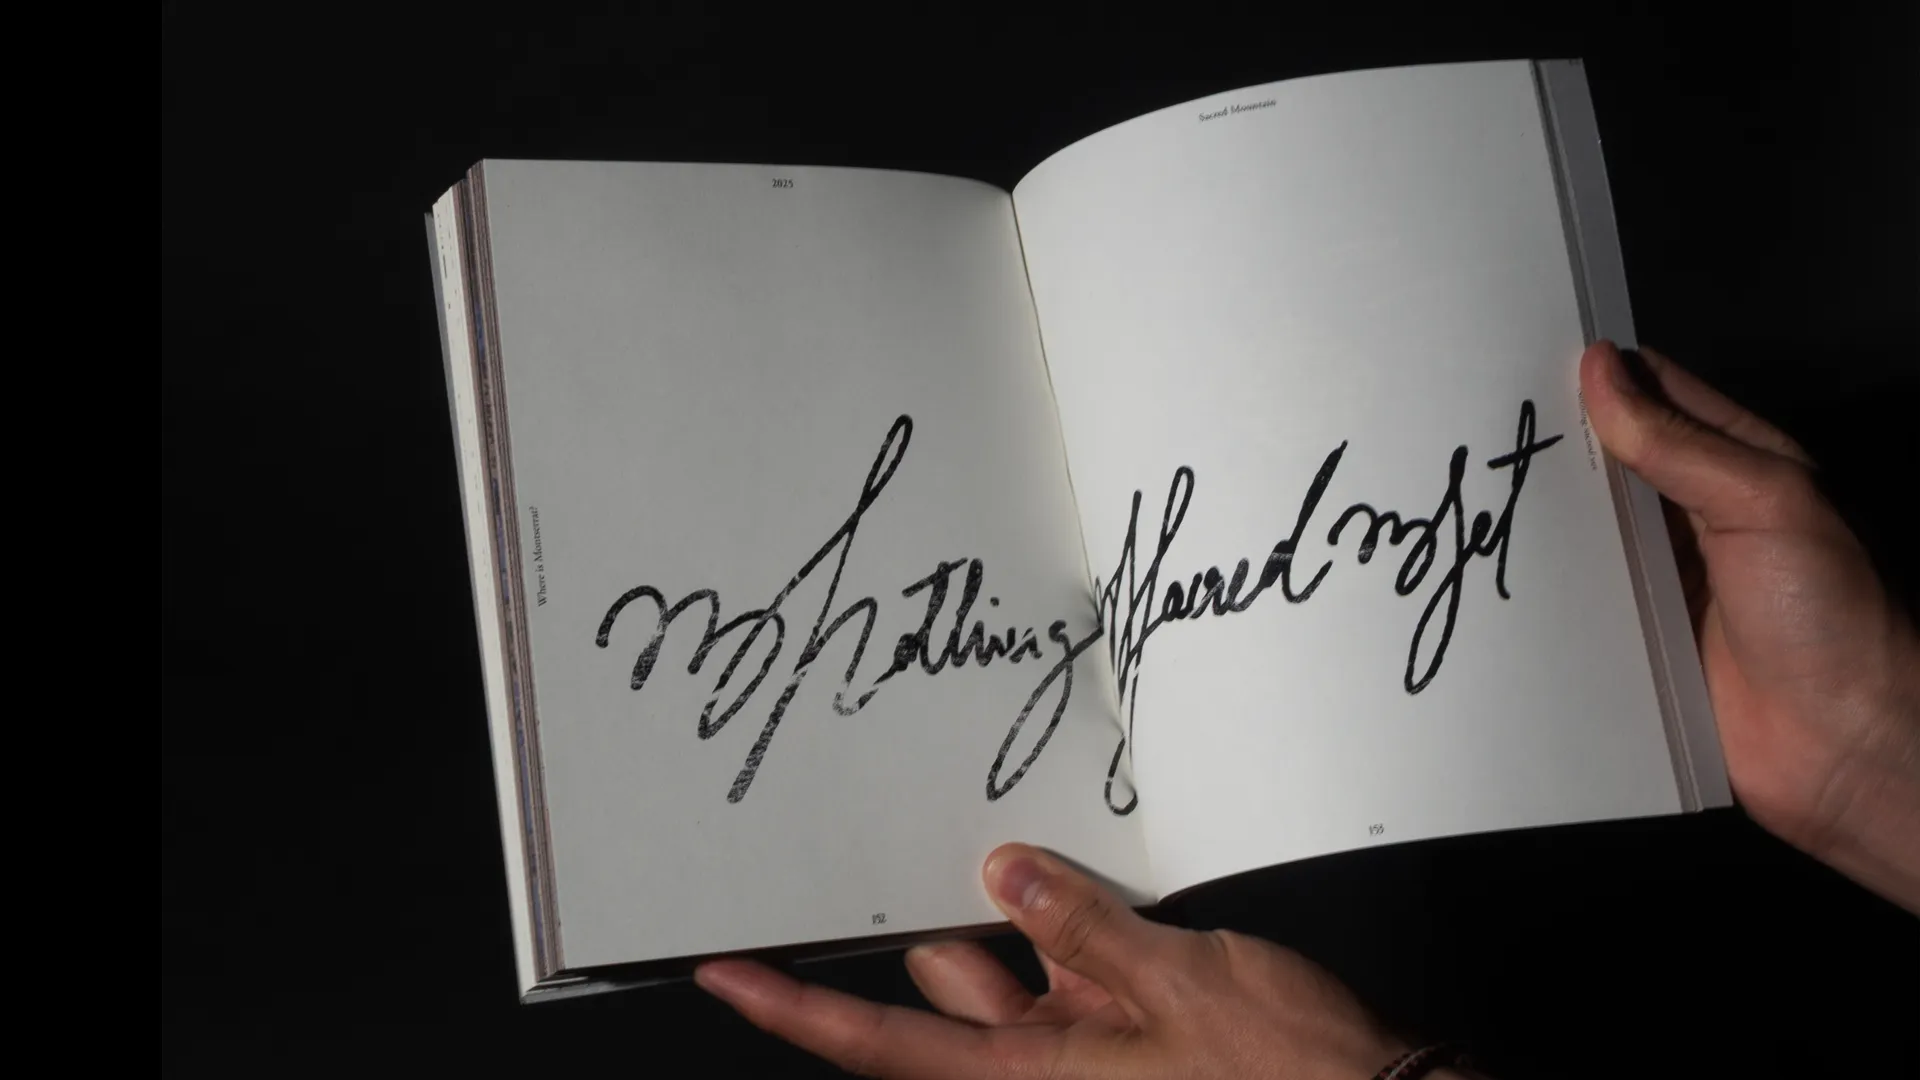 2025
Sacred Mountain
Where is Montserrat?
Nothing Sacred Yet
Nothing sacred yet
152
153